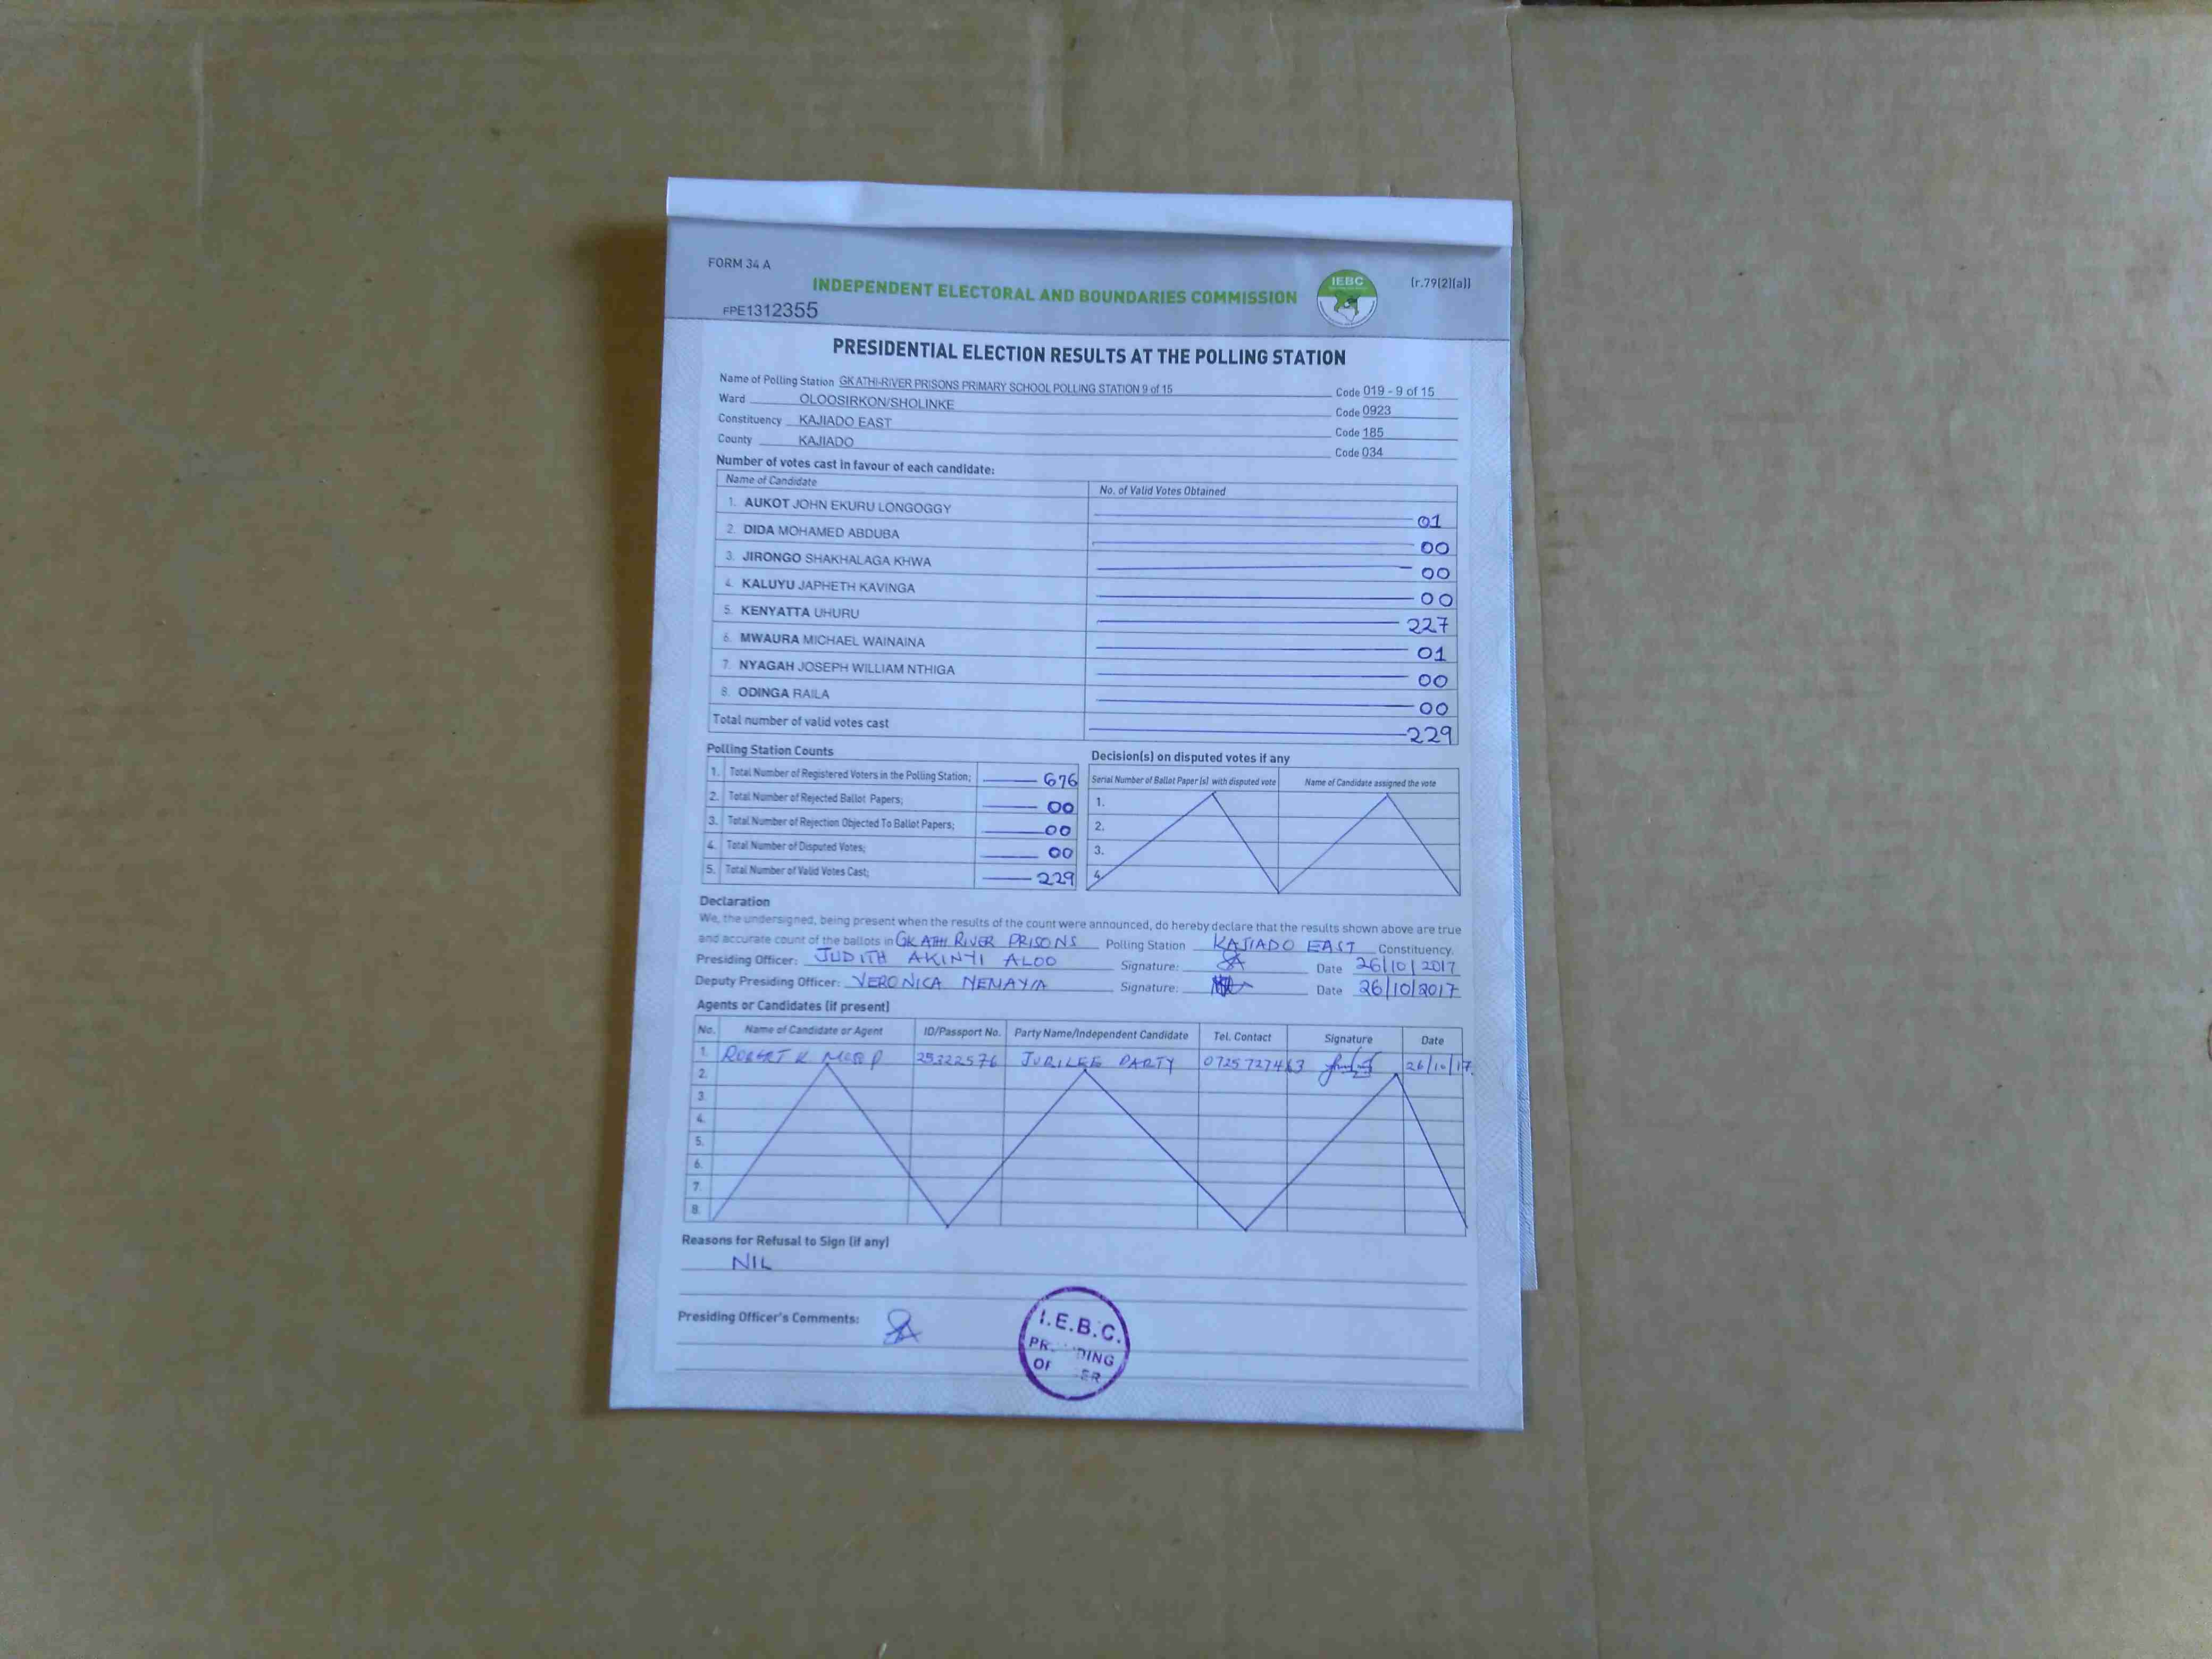 FORM 34 A
INDEPENDENT ELECTORAL AND BOUNDARIES COMMISSION
IEBC
(r.79(2)(a))
FPE1312355
PRESIDENTIAL ELECTION RESULTS AT THE POLLING STATION
Name of Polling Station GK ATHI-RIVER PRISONS PRIMARY SCHOOL POLLING STATION 9 of 15 Code 019 - 9 of 15
Ward OLOOSIRKON/SHOLINKE Code 0923
Constituency KAJIADO EAST Code 185
County KAJIADO Code 034
Number of votes cast in favour of each candidate:
Name of Candidate No. of Valid Votes Obtained
1. AUKOT JOHN EKURU LONGOGGY 01
2. DIDA MOHAMED ABDUBA 00
3. JIRONGO SHAKHALAGA KHWA 00
4. KALUYU JAPHETH KAVINGA 00
5. KENYATTA UHURU 227
6. MWAURA MICHAEL WAINAINA 01
7. NYAGAH JOSEPH WILLIAM NTHIGA 00
8. ODINGA RAILA 00
Total number of valid votes cast 229
Polling Station Counts
1. Total Number of Registered Voters in the Polling Station; 676
2. Total Number of Rejected Ballot Papers; 00
3. Total Number of Rejection Objected To Ballot Papers; 00
4. Total Number of Disputed Votes; 00
5. Total Number of Valid Votes Cast; 229
Decision(s) on disputed votes if any
Serial Number of Ballot Paper (s) with disputed vote Name of Candidate assigned the vote
1.
2.
3.
4.
Declaration
We, the undersigned, being present when the results of the count were announced, do hereby declare that the results shown above are true
and accurate count of the ballots in GK ATHI RIVER PRISONS Polling Station KAJIADO EAST Constituency.
Presiding Officer: JUDITH AKINYI ALOO Signature: Date 26/10/2017
Deputy Presiding Officer: VERONICA NEMAYIA Signature: Date 26/10/2017
Agents or Candidates (if present)
No. Name of Candidate or Agent ID/Passport No. Party Name/Independent Candidate Tel. Contact Signature Date
1. ROBERT K 25322576 JUBILEE PARTY 26/10/17.
2.
3.
4.
5.
6.
7.
8.
Reasons for Refusal to Sign (if any)
NIL
Presiding Officer's Comments:
I.E.B.C.